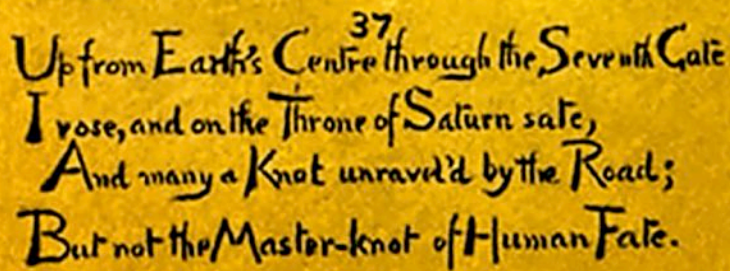 37
Up from Earth's Centre through the Seventh Gate
I rose, and on the Throne of Saturn sate,
And many a Knot unravel'd by the Road;
But not the Master-knot of Human Fate.